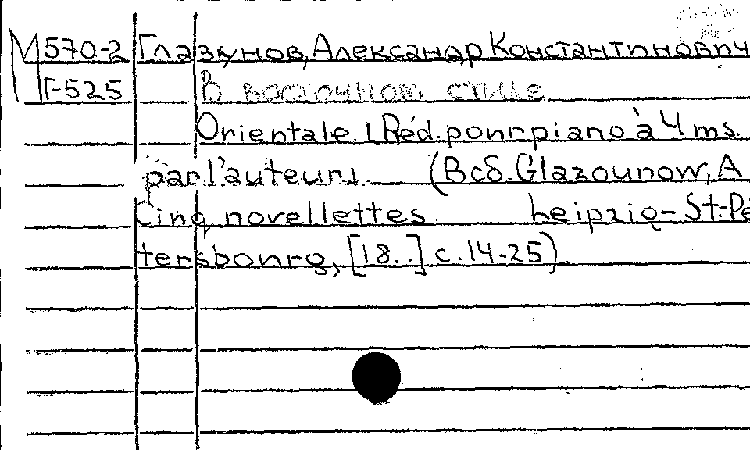 М 570-2 Глазунов, Александр Константинович
Г-525 В восточном стиле
Orientale. (Réd. pour piano à 4 ms.
par l'auteur). (В сб. Glazounow, A
Cinq novellettes. Leipzig-St-Pé
tersbourg, [18..] с. 14-25)